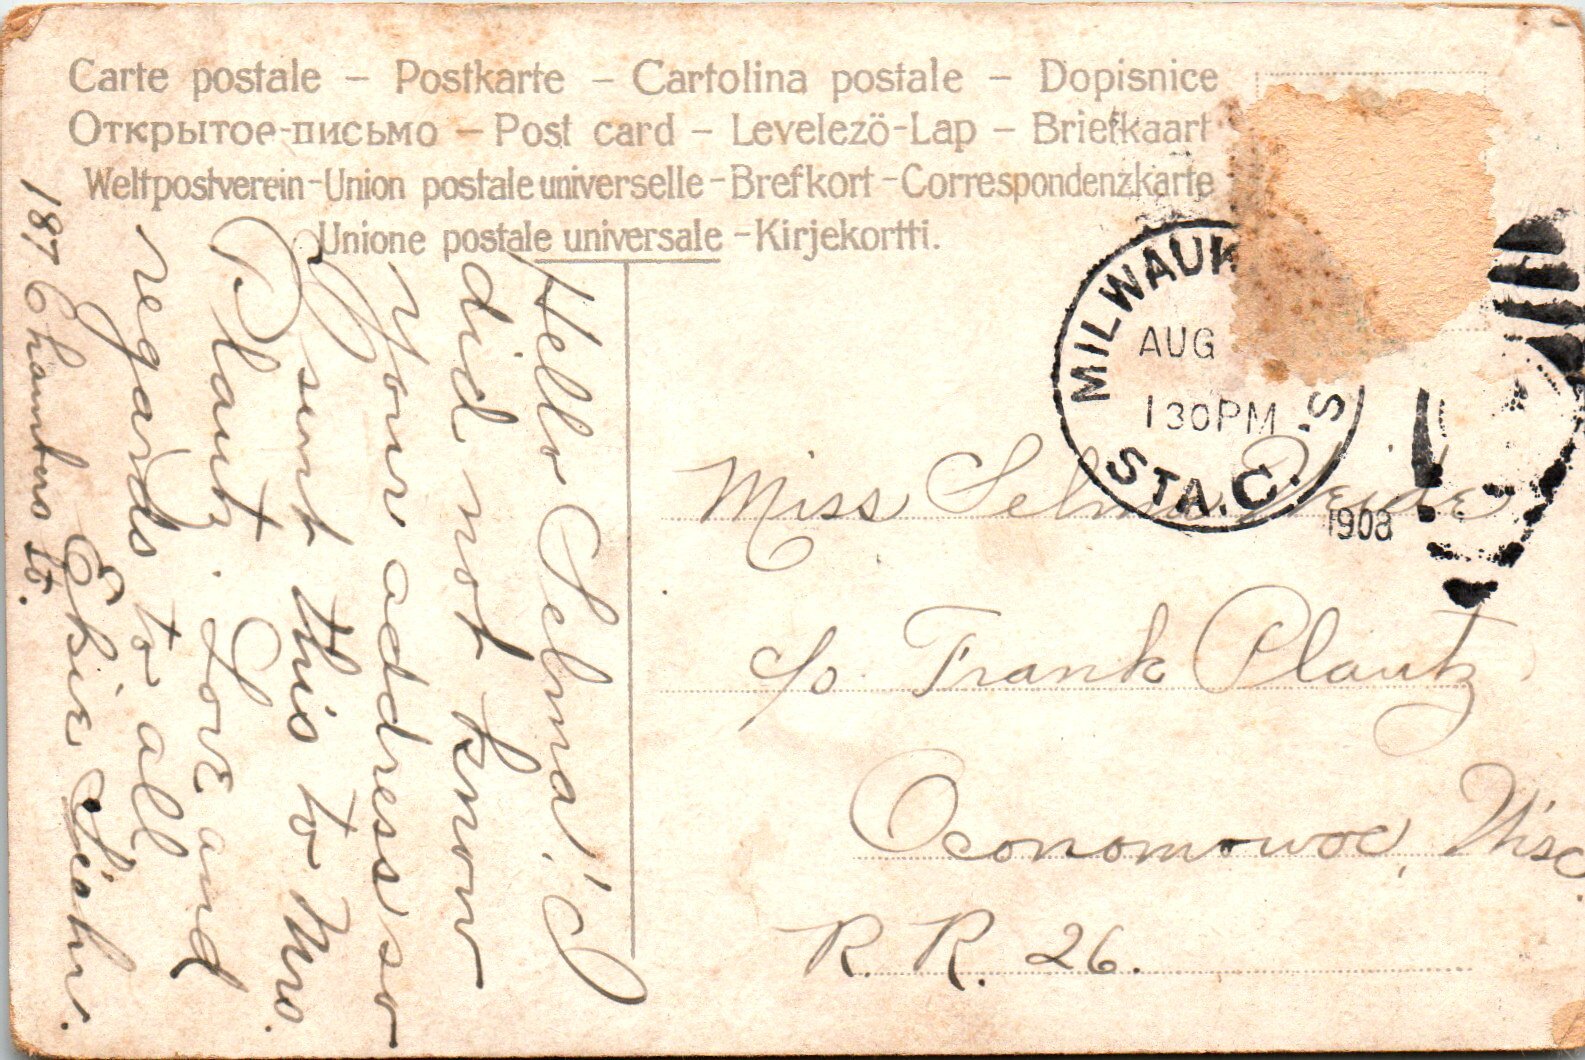 Carte postale – Postkarte – Cartolina postale – Dopisnice
Открытое-письмо – Post card – Levelezö-Lap – Briefkaart
Weltpostverein-Union postale universelle-Brefkort-Correspondenzkarte
Unione postale universale-Kirjekortti.
MILWAUK
AUG
1 30 PM
STA. C.
1908
Miss Selma
c/o Frank Plautz
Oconomowoc, Wisc.
R. R. 26.
Hello Selma! I
did not know
your address so
I sent this to Mrs.
Plautz. Love and
regards to all
Elsie
187 Chambers St.